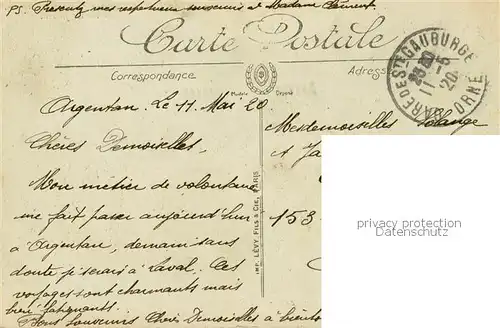 PS. Presentez mes respectueux souvenirs à Madame Laurent
Carte Postale
Correspondance
Adresse
Modèle Déposé
GARE DE STE GAUBURGE
11 - 5
20
ORNE
Argentan, Le 11 Mai 20
Chères Demoiselles,
Mon métier de volontaire
me fait passer aujourd'hui
à Argentan, demain sans
doute je serais à Laval. Ces
voyages sont charmants mais
bien fatigants.
Bons souvenirs Chères Demoiselles à bientôt
IMP. LÉVY FILS & CIE, PARIS
Mesdemoiselles Solange
et Ja
153
privacy protection
www.oldthing.com